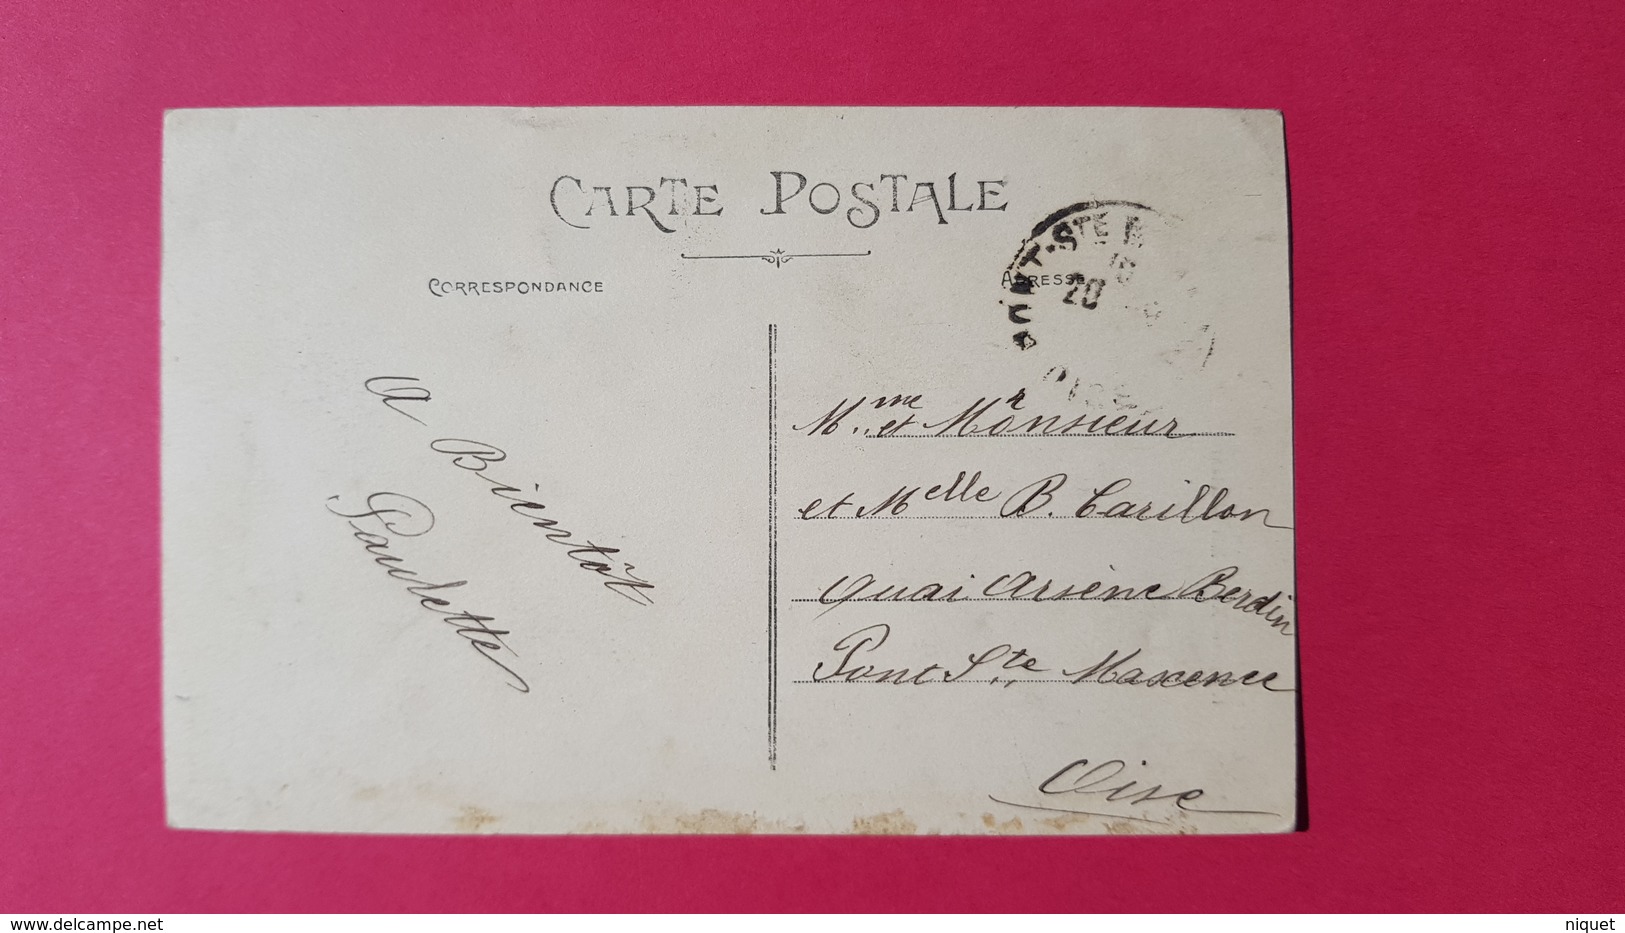 CARTE POSTALE
CORRESPONDANCE
ADRESSE
PONT-STE M
20
OISE
A Bientôt
Paulette
Mme et Monsieur
et Melle B. Carillon
Quai Arsène Berdin
Pont Ste Maxence
Oise
delcampe.net
niquet